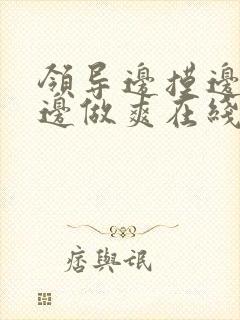 領导邊摸邊
邊做爽在綫
痞與氓